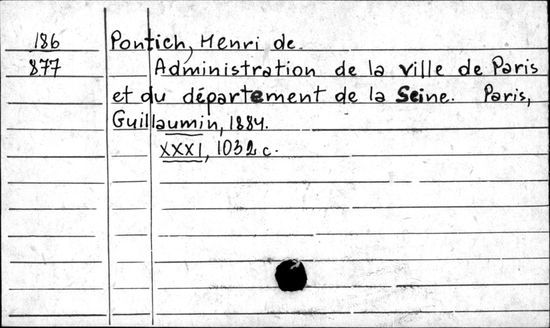 186 Pontich, Henri de.
877 Administration de la ville de Paris
et du département de la Seine. Paris,
Guillaumin, 1884.
XXXI, 1032 c.